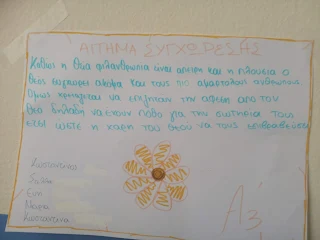 ΑΙΤΗΜΑ ΣΥΓΧΩΡΕΣΗΣ
Καθώς η Θεία φιλανθρωπία είναι άπειρη και η πλούσια ο
Θεος συγχωρεί ακόμα και τους πιο αμαρτωλούς ανθρώπους
Όμως χρειάζεται να ζητήσουν την άφεση από τον
Θεό δηλαδή να έχουν πόθο για την σωτηρία τους
έτσι ώστε η χάρη του Θεού να τους
Κωνσταντίνα
Εύη
Μαρία
Κωνσταντίνα
Α3